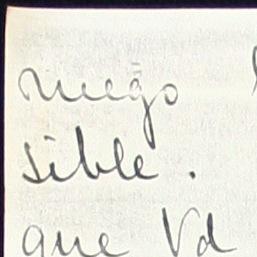 ruego
sible.
que Vd